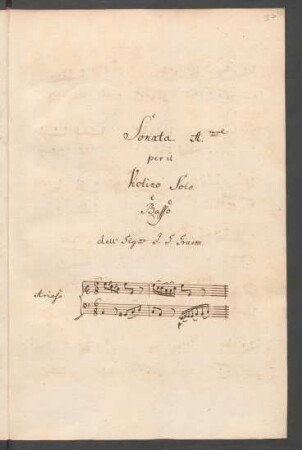 Sonata. A. mol
per il
Violino Solo
e
Basso
dell Sigr J. G. Graun.
Arioso